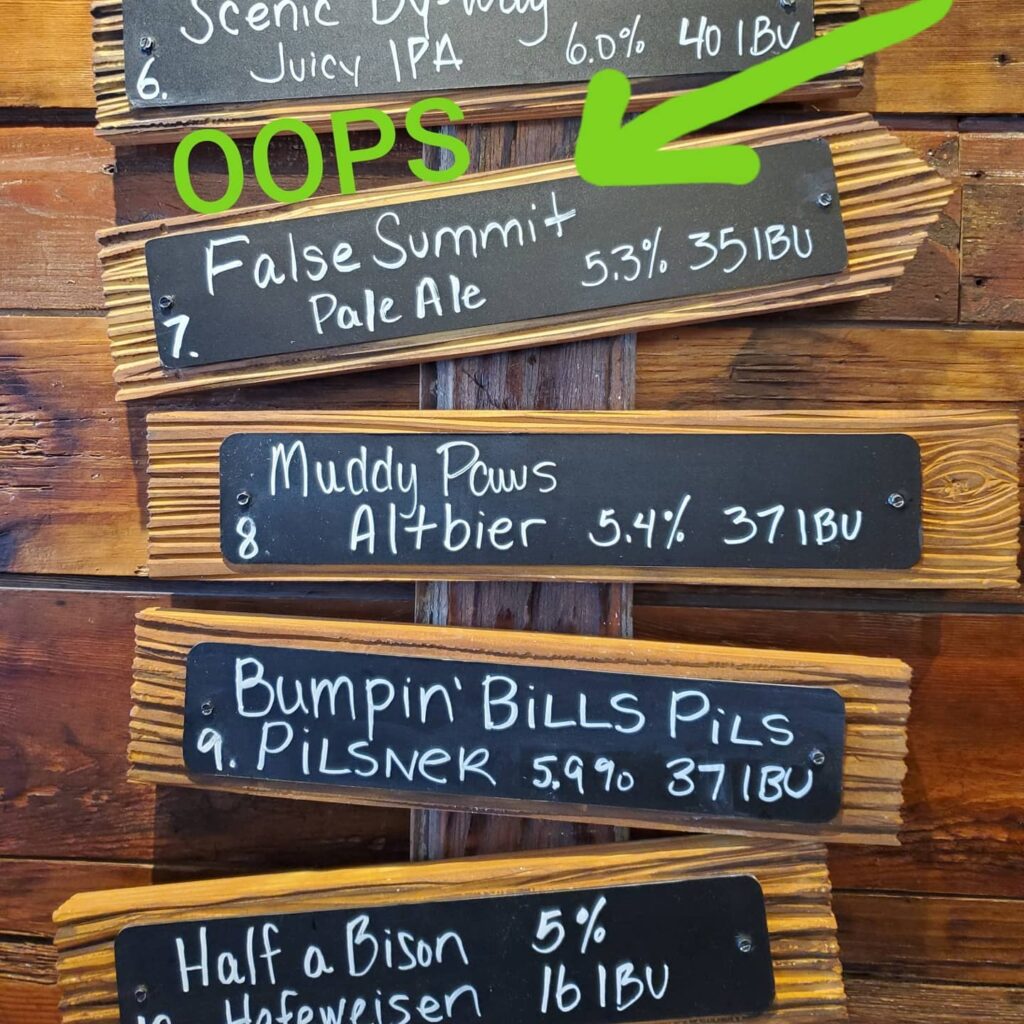 Scenic By-Way
Juicy IPA 6.0% 40 IBU
6.
OOPS
False Summit
Pale Ale 5.3% 35 IBU
7.
Muddy Paws
8 Altbier 5.4% 37 IBU
Bumpin' BiLLS PiLS
9. PiLSNER 5.9% 37 IBU
Half a Bison 5%
10 Hefeweisen 16 IBU